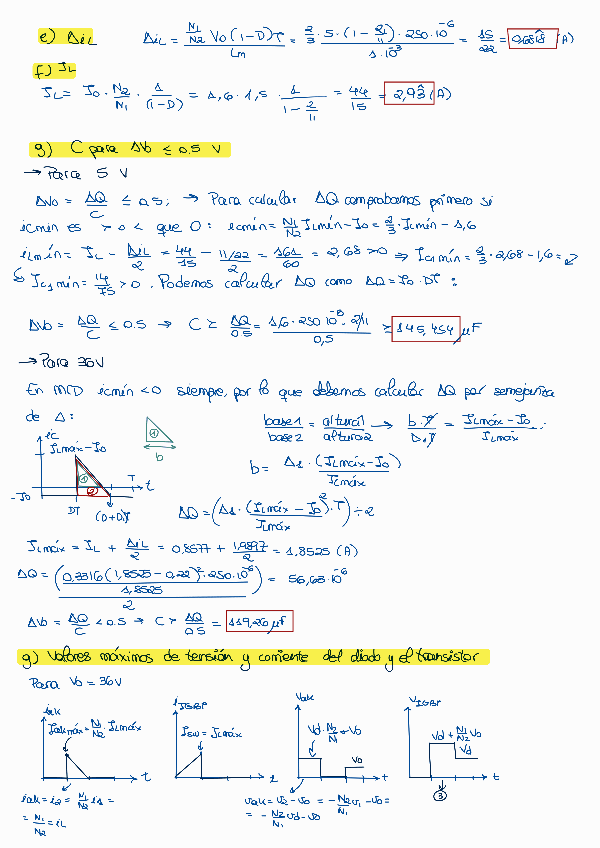 e) ΔiL ΔiL = N1/N2 Vo (1-D)T / Lm = 2/3 · 5 · (1 - 2/11) · 250 · 10^-6 / 1 · 10^-3 = 15/22 = 0,6818 (A)
f) IL
IL = Io · N2/N1 · 1/(1-D) = 1,6 · 1,5 · 1/(1 - 2/11) = 44/15 = 2,93 (A)
g) C para ΔVo ≤ 0.5 V
→ Para 5 V
ΔVo = ΔQ/C ≤ 0.5; → Para calcular ΔQ comprobamos primero si
icmin es > o < que 0: icmin = N1/N2 ILmin - Io = 2/3 · ILmin - 1,6
iLmin = IL - ΔiL/2 = 44/15 - 11/22/2 = 161/60 = 2,68 > 0 ⇒ Ic1min = 2/3 · 2,68 - 1,6 =
Ic1min = 14/75 > 0. Podemos calcular ΔQ como ΔQ = Io · DT:
ΔVo = ΔQ/C ≤ 0.5 → C ≥ ΔQ/0.5 = 1,6 · 250 · 10^-6 · 2/11 / 0,5 ≥ 145,454 μF
→ Para 36V
En MCD icmin < 0 siempre, por lo que debemos calcular ΔQ por semejanza
de Δ:
base1/base2 = altura1/altura2 → b·T/Δ1·T = ILmáx - Io/ILmáx
ic
ILmáx - Io
b
T
t
-Io
DT
(D+D1)T
b = Δ1 · (ILmáx - Io)/ILmáx
ΔQ = (Δ1 · (ILmáx - Io)^2 · T / ILmáx) ÷ 2
ILmáx = IL + ΔiL/2 = 0,8577 + 1,9897/2 = 1,8525 (A)
ΔQ = (0,3316 (1,8525 - 0,22)^2 · 250 · 10^-6 / 1,8525) / 2 = 56,63 · 10^-6
ΔVo = ΔQ/C < 0.5 → C > ΔQ/0.5 = 119,26 μF
g) Valores máximos de tensión y corriente del diodo y el transistor
Para Vo = 36V
iak
Iakmáx = N1/N2 · ILmáx
t
iIGBT
Isw = ILmáx
t
Vak
Vd · N2/N1 + Vo
Vo
t
VIGBT
Vd + N1/N2 Vo
Vd
t
3
iak = i2 = N1/N2 i1 =
= N1/N2 = iL
Vak = V2 - Vo = - N2/N1 V1 - Vo =
= - N2/N1 Vd - Vo